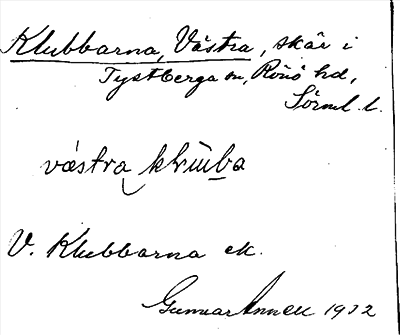 Klubbarna, Västra, skär i
Tystberga sn, Rönö hd,
Sörml. l.
västra klu̇bba
V. Klubbarna ek.
Gunnar Annell 1932